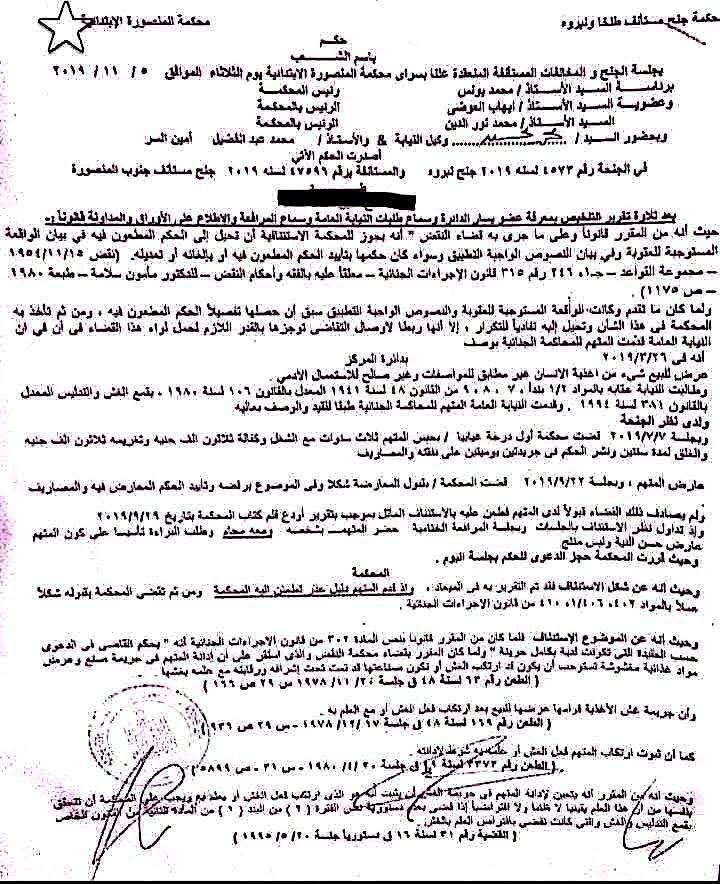 محكمة جنح مستأنف طلخا ونبروه
محكمة المنصورة الإبتدائية
حكم
باسم الشعب
بجلسة الجنح و المخالفات المستأنفة المنعقدة علنا بسراى محكمة المنصورة الابتدائية يوم الثلاثاء الموافق ٥ / ١١ / ٢٠١٩
برئاسة السيد الأستاذ / محمد يونس رئيس المحكمة
وعضوية السيد الأستاذ / ايهاب العوضى الرئيس بالمحكمة
السيد الأستاذ / محمد نور الدين الرئيس بالمحكمة
وبحضور السيد / وكيل النيابة & والأستاذ / محمد عبد الفضيل أمين السر
أصدرت الحكم الأتي
فى الجنحة رقم ٤٥٧٣ لسنه ٢٠١٩ جنح نبروه والمستأنفة برقم ٤٧٥٩٦ لسنه ٢٠١٩ جنح مستأنف جنوب المنصورة
بعد تلاوة تقرير التلخيص بمعرفة عضو يسار الدائرة وسماع طلبات النيابة العامة وسماع المرافعة والاطلاع على الأوراق والمداولة قانوناً :-
حيث أنه من المقرر قانوناً وعلى ما جرى به قضاء النقض " أنه يجوز للمحكمة الاستئنافية أن تحيل إلى الحكم المطعون فيه في بيان الواقعة
المستوجبة للعقوبة وفي بيان النصوص الواجبة التطبيق وسواء كان حكمها بتأييد الحكم المطعون فيه او بإلغائه أو تعديله. (نقض ١٩٥٤/١١/١٥
– مجموعة القواعد – جـ١ ٢٤٦ رقم ٣١٥ قانون الإجراءات الجنائية – معلقاً عليه بالفقه وأحكام النقض – للدكتور مأمون سلامة – طبعة ١٩٨٠
– ص ١١٧٥ )
ولما كان ما تقدم وكانت الواقعة المستوجبة للعقوبة والنصوص الواجبة التطبيق سبق أن حصلها تفصيلاً الحكم المطعون فيه ، ومن ثم تأخذ به
المحكمة فى هذا الشأن وتحيل إليه تفادياً للتكرار ، إلا أنها ربطا لأوصال التقاضى توجزها بالقدر اللازم لحمل لواء هذا القضاء فى أن
النيابة العامة قدمت المتهم للمحاكمة الجنائية بوصف
أنه فى ٢٠١٩/٣/٢٦ بدائرة المركز
عرض للبيع شيء من اغذية الانسان غير مطابق للمواصفات وغير صالح للاستعمال الأدمي
وطالبت النيابة عقابه بالمواد ١/٢ بند أ ، ٧ ، ٨ ، ٩ من القانون ٤٨ لسنة ١٩٤١ المعدل بالقانون ١٠٦ لسنة ١٩٨٠ ، بقمع الغش والتدليس المعدل
بالقانون ٢٨١ لسنة ١٩٩٤ . وقدمت النيابة العامة المتهم للمحاكمة الجنائية طبقا للقيد والوصف بعاليه
ولدى نظر الجنحة
وبجلسة ٢٠١٩/٧/٧ قضت محكمة أول درجة غيابيا / بحبس المتهم ثلاث سنوات مع الشغل وكفالة ثلاثون الف جنيه وتغريمه ثلاثون الف جنيه
والغلق لمدة سنتين ونشر الحكم فى جريدتين يوميتين على نفقته والمصاريف
عارض المتهم ، وبجلسة ٢٠١٩/٩/٢٢ قضت المحكمة / بقبول المعارضة شكلا وفى الموضوع برفضه وتأييد الحكم المعارض فيه والمصاريف
ولم يصادف ذلك القضاء قبولاً لدى المتهم فطعن عليه بالاستئناف الماثل بموجب بتقرير أودع قلم كتاب المحكمة بتاريخ ٢٠١٩/٩/٢٩
وإذ تداول نظر الاستئناف بالجلسات وبجلسة المرافعة الختامية حضر المتهم بشخصه ومعه محام وطلب البراءة تأسيسا على كون المتهم
عارض حسن النية وليس منتج
وحيث قررت المحكمة حجز الدعوى للحكم بجلسة اليوم .
المحكمة
وحيث أنه عن شكل الاستئناف فقد تم التقرير به فى الميعاد ، وإذ قدم المتهم دليل عذر تطمئن اليه المحكمة ومن ثم تقضى المحكمة بقبوله شكلاً
عملاً بالمواد ٤٠٢، ٤٠٦/١، ٤٢٠ من قانون الاجراءات الجنائية .
وحيث أنه عن الموضوع الإستئناف فلما كان من المقرر قانوناً بنص المادة ٣٠٢ من قانون الإجراءات الجنائية أنه " يحكم القاضى فى الدعوى
حسب العقيدة التى تكونت لدية بكامل حريته " ولما كان المقرر بقضاء محكمة النقض والذى استقر على أن إدانة المتهم فى جريمة صنع وعرض
مواد غذائية مغشوشة تستوجب أن يكون قد ارتكب الغش أو تكون صناعتها قد تمت تحت إشرافه ورقابته مع علمه بغشها .
( الطعن رقم ٦٣ لسنة ٤٨ ق جلسة ٢٤ / ١١ / ١٩٧٨ س ٢٩ ص ١٦٦ )
وأن جريمة غش الأغذية قوامها عرضها للبيع بعد ارتكاب فعل الغش أو مع العلم به .
( الطعن رقم ١٦٩ لسنة ٤٨ ق جلسة ١٧ / ١٢ / ١٩٧٨ - س ٢٩ ص ٩٣٦ )
كما أن ثبوت ارتكاب المتهم فعل الغش أو علمه به شرط لإدانته .
( الطعن رقم ٣٣٧٣ لسنة ق جلسة ٢٠ / ٤ / ١٩٨٠ - س ٣١ - ص ٥٨٩٩ )
وحيث أنه من المقرر أنه يتعين لإدانة المتهم فى جريمة الغش أن يثبت أنه هو الذى ارتكب فعل الغش أو يعلم به ويجب على المحكمة أن تتحقق
بنفسها من أن هذا العلم يقينيا لا ظنيا ولا افتراضيا إذا قضى بعدم دستورية نص الفقرة ( ٢ ) من البند ( ١ ) من المادة الثانية من القانون الخاص
بقمع التدليس والغش والتي كانت تقضى بافتراض العلم بالغش.
( القضية رقم ٣١ لسنة ١٦ ق دستوريا جلسة ٢٠ / ٥ / ١٩٩٥ )